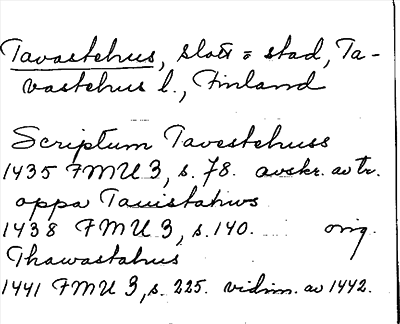 Tavastehus, slott o stad, Ta-
vastehus l., Finland
Scriptum Tavestehuss
1435 FMU 3, s. 78. avskr. av tr.
oppa Tauistahws
1438 FMU 3, s. 140. orig.
Thawastahus
1441 FMU 3, s. 225. vidim. av 1442.